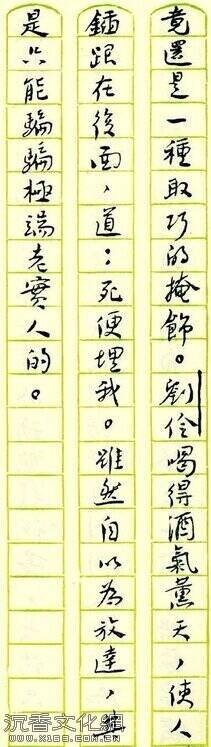 竟還是一種取巧的掩飾。劉伶喝得酒氣薰天，使人
鍤跟在後面，道：死便埋我。雖然自以為放達，
是只能騙騙極端老實人的。
沉香文化網